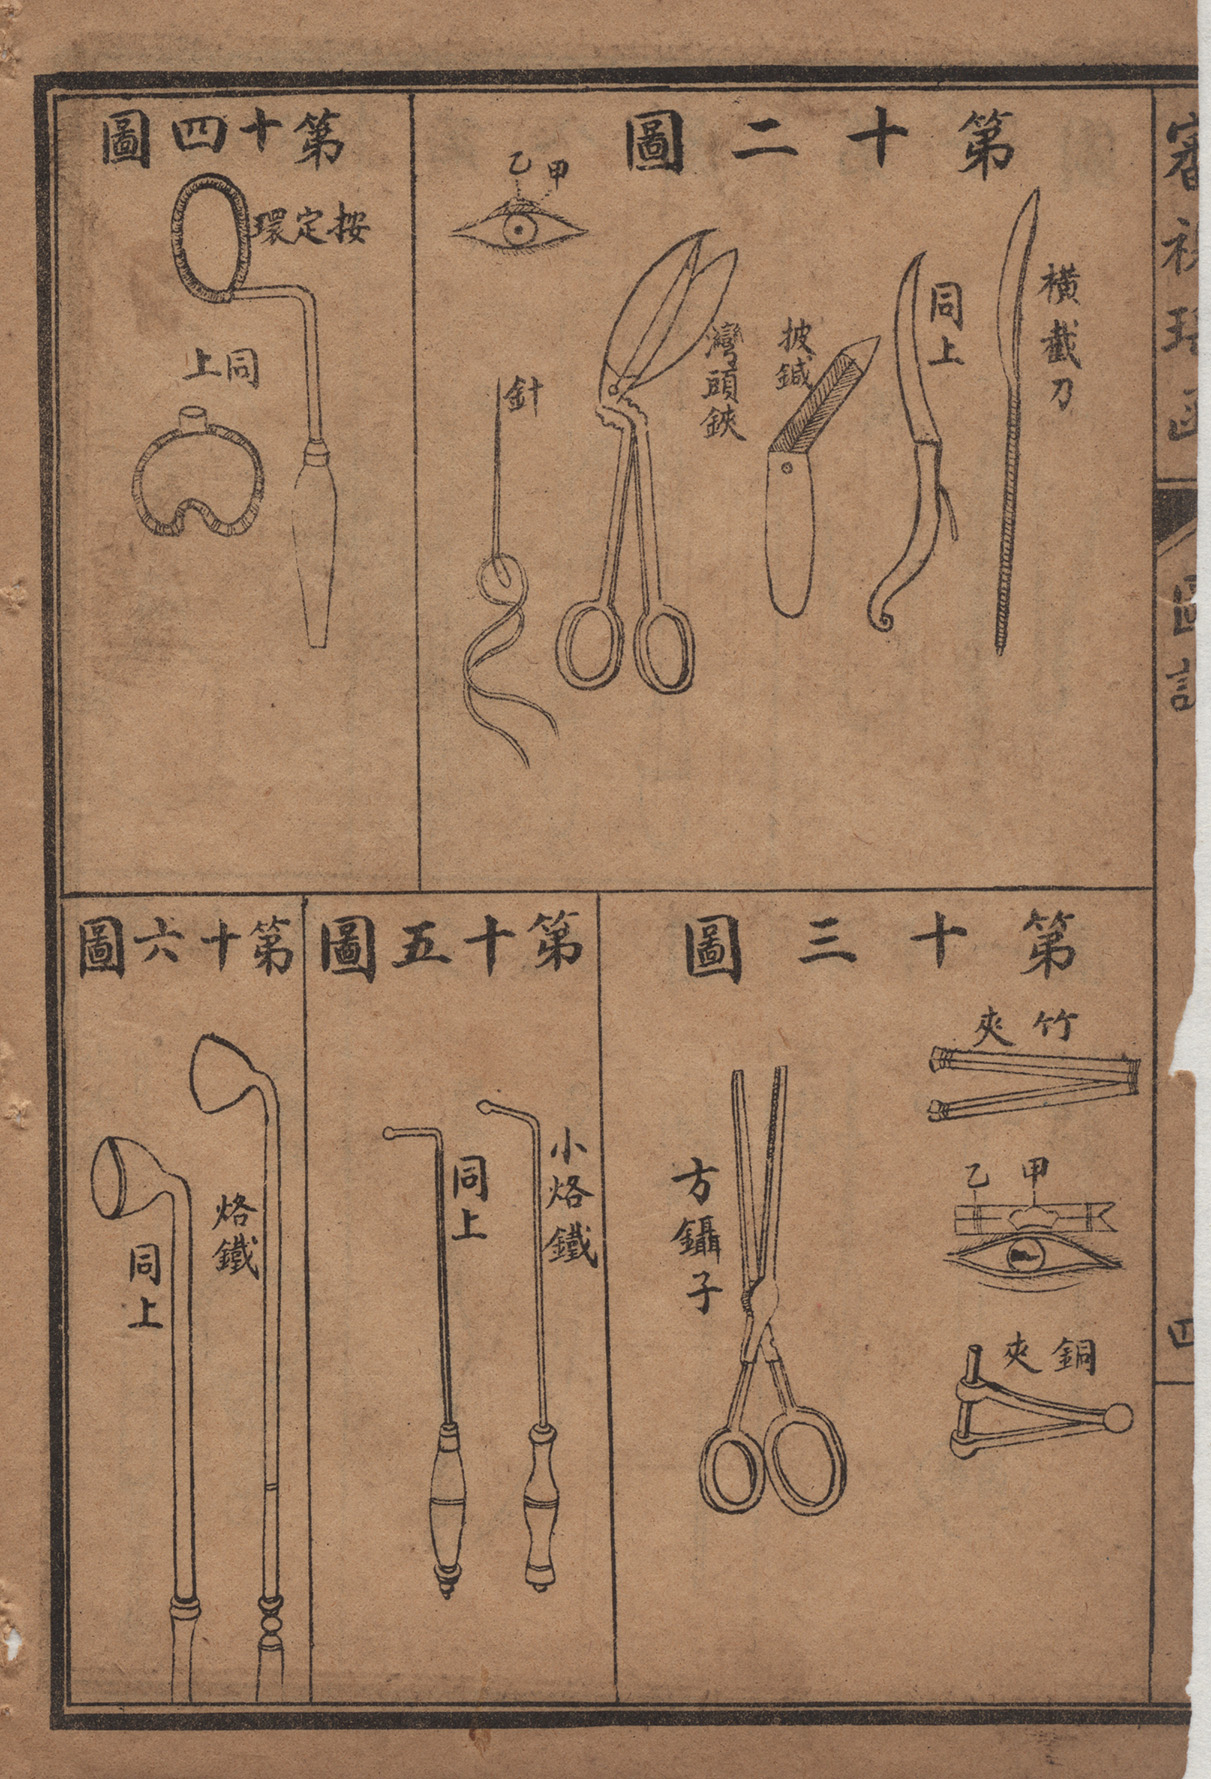 第十二圖
橫截刀
同上
披鍼
灣頭鋏
甲
乙
針
第十四圖
按定環
同上
第十三圖
竹夾
甲
乙
銅夾
方鑷子
第十五圖
小烙鐵
同上
第十六圖
烙鐵
同上
審視瑤函
圖説
四